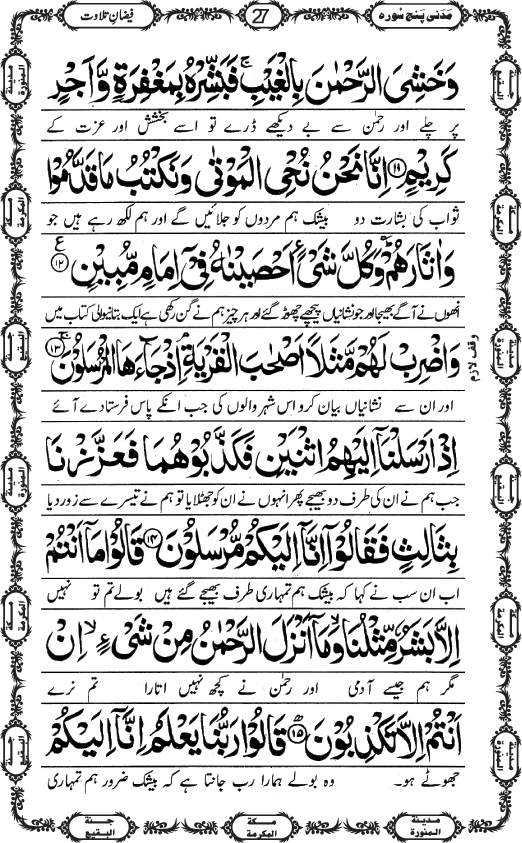 مَدَنی پَنْج سُورہ
27
فیضانِ تلاوت
وَخَشِیَ الرَّحْمٰنَ بِالْغَیْبِ ۚ فَبَشِّرْهُ بِمَغْفِرَةٍ وَّاَجْرٍ
پر چلے اور رحمٰن سے بے دیکھے ڈرے تو اسے بخشش اور عزت کے
كَرِیْمٍ ﴿۱۱﴾ اِنَّا نَحْنُ نُحْیِ الْمَوْتٰى وَنَكْتُبُ مَا قَدَّمُوْا
ثواب کی بشارت دو بیشک ہم مردوں کو جلائیں گے اور ہم لکھ رہے ہیں جو
وَاٰثَارَهُمْ ۭ وَكُلَّ شَیْءٍ اَحْصَیْنٰهُ فِیْۤ اِمَامٍ مُّبِیْنٍ ﴿۱۲﴾ ع
انھوں نے آگے بھیجا اور جو نشانیاں پیچھے چھوڑ گئے اور ہر چیز ہم نے گن رکھی ہے ایک بتانیوالی کتاب میں
وَاضْرِبْ لَهُمْ مَّثَلًا اَصْحٰبَ الْقَرْیَةِ ۘ اِذْ جَآءَهَا الْمُرْسَلُوْنَ ﴿۱۳﴾
وقف لازم
اور ان سے نشانیاں بیان کرو اس شہر والوں کی جب انکے پاس فرستادے آئے
اِذْ اَرْسَلْنَاۤ اِلَیْهِمُ اثْنَیْنِ فَكَذَّبُوْهُمَا فَعَزَّزْنَا
جب ہم نے ان کی طرف دو بھیجے پھر انہوں نے ان کو جھٹلایا تو ہم نے تیسرے سے زور دیا
بِثَالِثٍ فَقَالُوْۤا اِنَّاۤ اِلَیْكُمْ مُّرْسَلُوْنَ ﴿۱۴﴾ قَالُوْا مَاۤ اَنْتُمْ
اب ان سب نے کہا کہ بیشک ہم تمہاری طرف بھیجے گئے ہیں بولے تم تو نہیں
اِلَّا بَشَرٌ مِّثْلُنَا ۙ وَمَاۤ اَنْزَلَ الرَّحْمٰنُ مِنْ شَیْءٍ ۙ اِنْ
مگر ہم جیسے آدمی اور رحمٰن نے کچھ نہیں اتارا تم نرے
اَنْتُمْ اِلَّا تَكْذِبُوْنَ ﴿۱۵﴾ قَالُوْا رَبُّنَا یَعْلَمُ اِنَّاۤ اِلَیْكُمْ
جھوٹے ہو۔ وہ بولے ہمارا رب جانتا ہے کہ بیشک ضرور ہم تمہاری
مدینة المنورة
مكة المكرمة
جنة البقیع